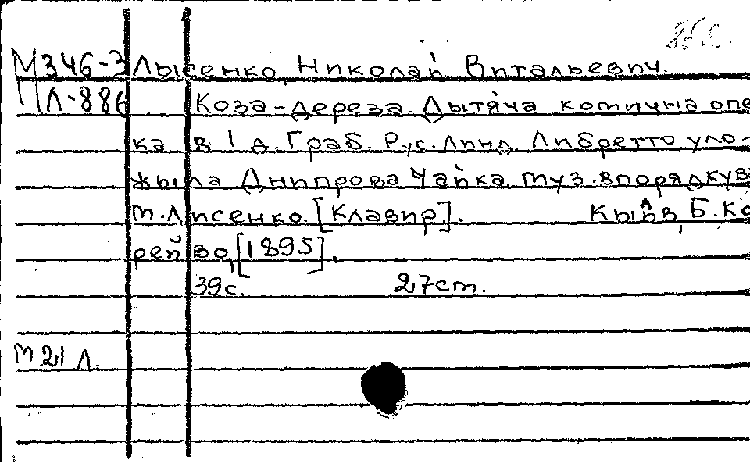 М346-3 Лысенко, Николай Витальевич.
Пл-886 Коза-дереза. Дытяча комична опе-
ка в 1 д. Граб. Рус. Линд. Либретто уло-
жыла Днипрова Чайка. Муз. впорядкував
М. Лисенко. [Клавир]. Кыйив, Б. Ко-
рейво, [1895].
39с. 27см.
М 21 Л